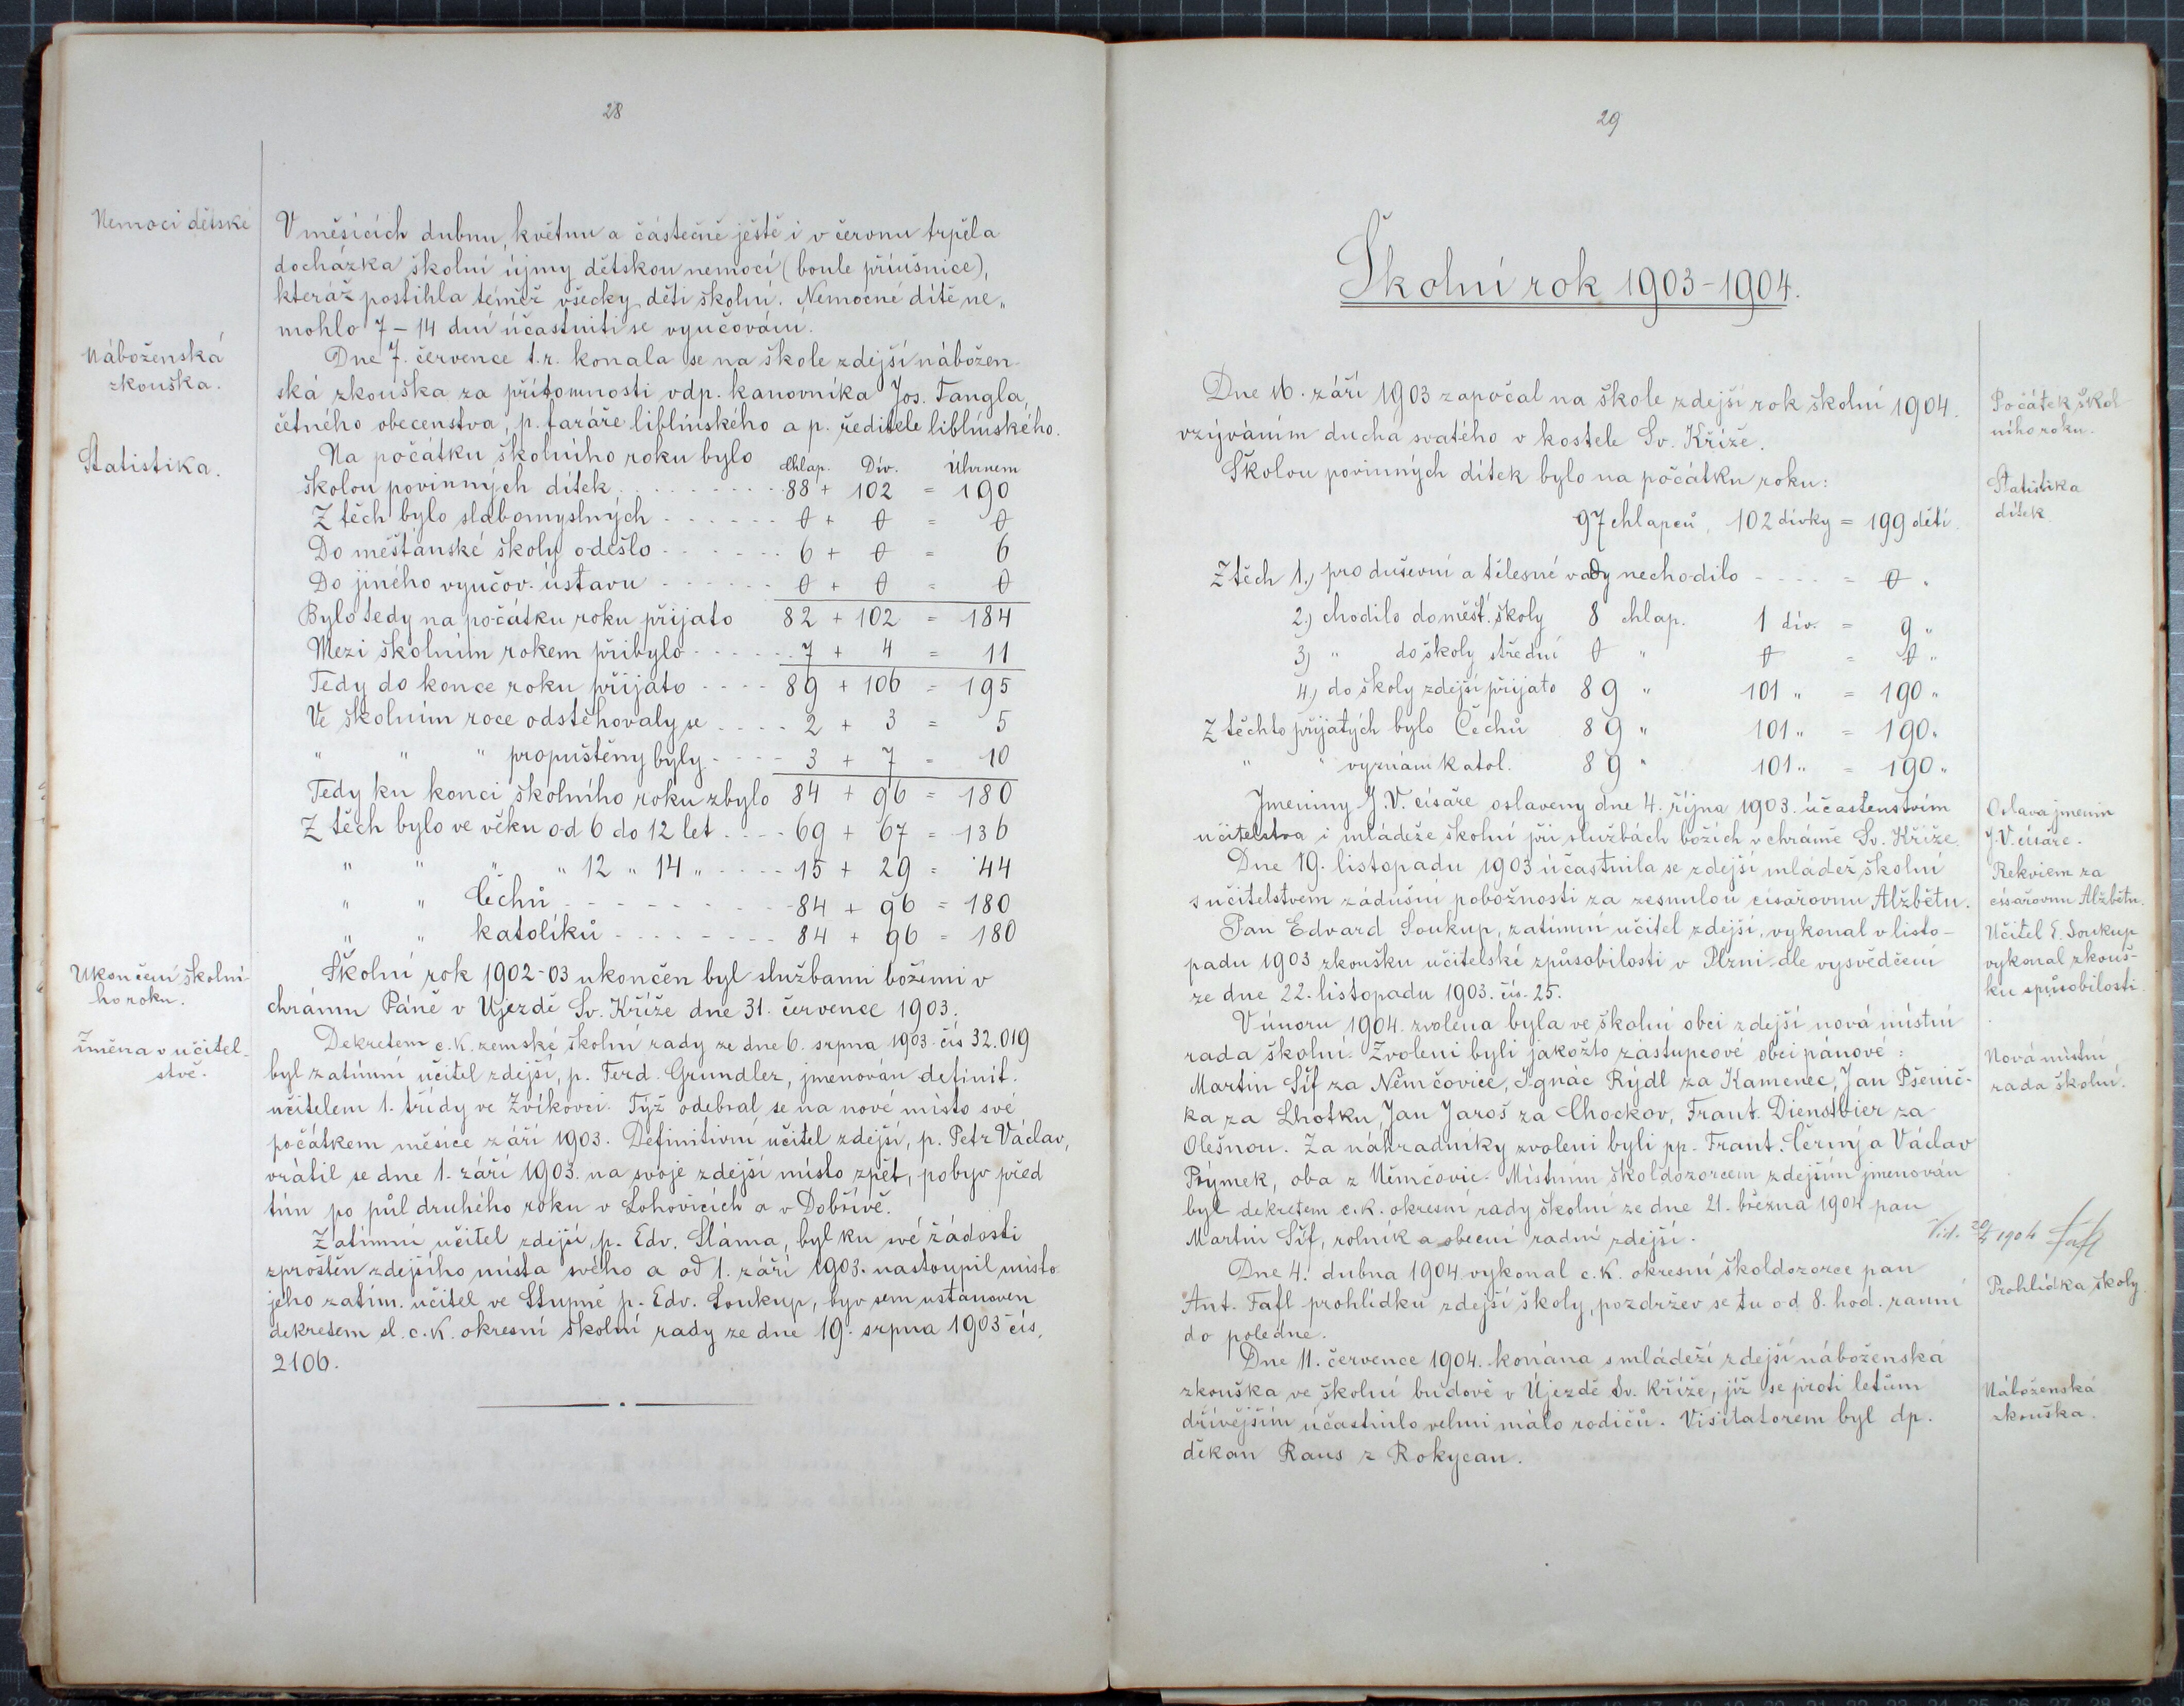 28
Nemoci dětské
V měsících dubnu, květnu a částečně ještě i v červnu trpěla
docházka školní újmy dětskou nemocí (boule příušnice),
kteráž postihla téměř všecky děti školní. Nemocné dítě ne„
mohlo 7 – 14 dní účastniti se vyučování.
Náboženská
zkouška.
Dne 7. července t.r. konala se na škole zdejší nábožen-
ská zkouška za přítomnosti vdp. kanovníka Jos. Tangla,
četného obecenstva, p. faráře liblínského a p. ředitele liblínského.
Statistika.
Na počátku školního roku bylo Chlap. Dív. Úhrnem
školou povinných dítek 88 + 102 = 190
Z těch bylo slabomyslných 0 + 0 = 0
Do měšťanské školy odešlo 6 + 0 = 6
Do jiného vyučov. ústavu 0 + 0 = 0
Bylo tedy na počátku roku přijato 82 + 102 = 184
Mezi školním rokem přibylo 7 + 4 = 11
Tedy do konce roku přijato 89 + 106 = 195
Ve školním roce odstěhovaly se 2 + 3 = 5
" " " propuštěny byly 3 + 7 = 10
Tedy ku konci školního roku zbylo 84 + 96 = 180
Z těch bylo ve věku od 6 do 12 let 69 + 67 = 136
" " " " 12 " 14 " 15 + 29 = 44
" " Čechů 84 + 96 = 180
" " katolíků 84 + 96 = 180
Ukončení školní-
ho roku.
Školní rok 1902-03 ukončen byl službami božími v
chrámu Páně v Újezdě Sv. Kříže dne 31. července 1903.
Změna v učitel-
stvě.
Dekretem c.k. zemské školní rady ze dne 6. srpna 1903 čís 32.019
byl zatímní učitel zdejší, p. Ferd. Grundler, jmenován definit.
učitelem 1. třídy ve Zvíkovci. Týž odebral se na nové místo své
počátkem měsíce září 1903. Definitivní učitel zdejší, p. Petr Václav,
vrátil se dne 1. září 1903. na svoje zdejší místo zpět, pobyv před
tím po půl druhého roku v Lohovicích a v Dobřívě.
Zatímní učitel zdejší, p. Edv. Sláma, byl ku své žádosti
zproštěn zdejšího místa svého a od 1. září 1903. nastoupil místo
jeho zatím. učitel ve Stupně p. Edv. Soukup, byv sem ustanoven
dekretem sl. c.k. okresní školní rady ze dne 19. srpna 1903 čís.
2106.
29
Školní rok 1903-1904.
Dne 16. září 1903 započal na škole zdejší rok školní 1904.
vzýváním ducha svatého v kostele Sv. Kříže.
Počátek škol-
ního roku.
Školou povinných dítek bylo na počátku roku:
97 chlapců, 102 dívky = 199 dětí.
Statistika
dítek
Z těch 1.) pro duševní a tělesné vady nechodilo = 0.
2.) chodilo do měšť. školy 8 chlap. 1 dív. = 9 "
3) " do školy střední 0 " 0 = 0 "
4.) do školy zdejší přijato 89 " 101 " = 190 "
Z těchto přijatých bylo Čechů 89 " 101 " = 190.
" " vyznání katol. 89 " 101 " = 190 "
Jmeniny J. V. císaře oslaveny dne 4. října 1903. účastenstvím
učitelstva i mládeže školní při službách božích v chrámě Sv. Kříže.
Oslava jmenin
J. V. císaře.
Dne 19. listopadu 1903 účastnila se zdejší mládež školní
s učitelstvem zádušní pobožnosti za zesnulou císařovnu Alžbětu.
Rekviem za
císařovnu Alžbětu.
Pan Edvard Soukup, zatímní učitel zdejší, vykonal v listo-
padu 1903 zkoušku učitelské způsobilosti v Plzni dle vysvědčení
ze dne 22. listopadu 1903. čís. 25.
Učitel E. Soukup
vykonal zkouš-
ku způsobilosti.
V únoru 1904. zvolena byla ve školní obci zdejší nová místní
rada školní. Zvoleni byli jakožto zástupcové obcí pánové:
Martin Šíf za Němčovice, Ignác Rýdl za Kamenec, Jan Pšenič-
ka za Lhotku, Jan Jaroš za Chockov, Frant. Dienstbier za
Olešnou. Za náhradníky zvoleni byli pp. Frant. Černý a Václav
Prýmek, oba z Němčovic. Místním škol dozorcem zdejším jmenován
byl dekretem c.k. okresní rady školní ze dne 21. března 1904 pan
Martin Šíf, rolník a obecní radní zdejší.
Nová místní
rada školní.
Vid. 1904 Fafl
Dne 4. dubna 1904 vykonal c.k. okresní škol dozorce pan
Ant. Fafl prohlídku zdejší školy, pozdržev se tu od 8. hod. ranní
do poledne.
Prohlídka školy.
Dne 11. července 1904. konána s mládeží zdejší náboženská
zkouška ve školní budově v Újezdě Sv. Kříže, jíž se proti letům
dřívějším účastnilo velmi málo rodičů. Visitatorem byl dp.
děkan Raus z Rokycan.
Náboženská
zkouška.